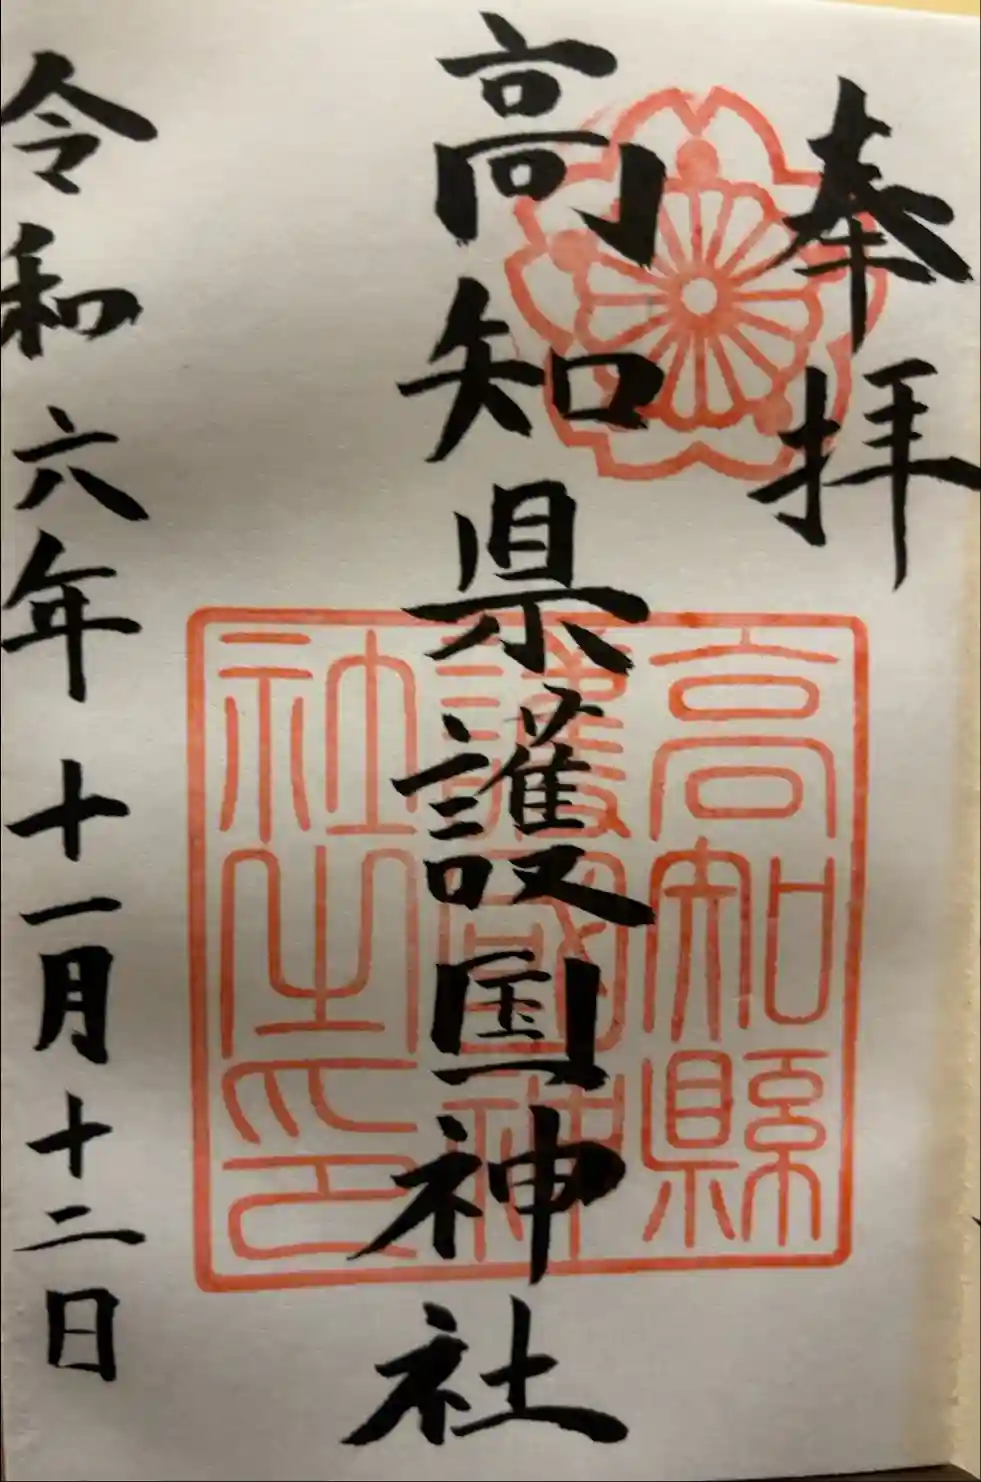 奉拝
高知県護国神社
高知縣
護國神
社之印
令和六年十一月十二日